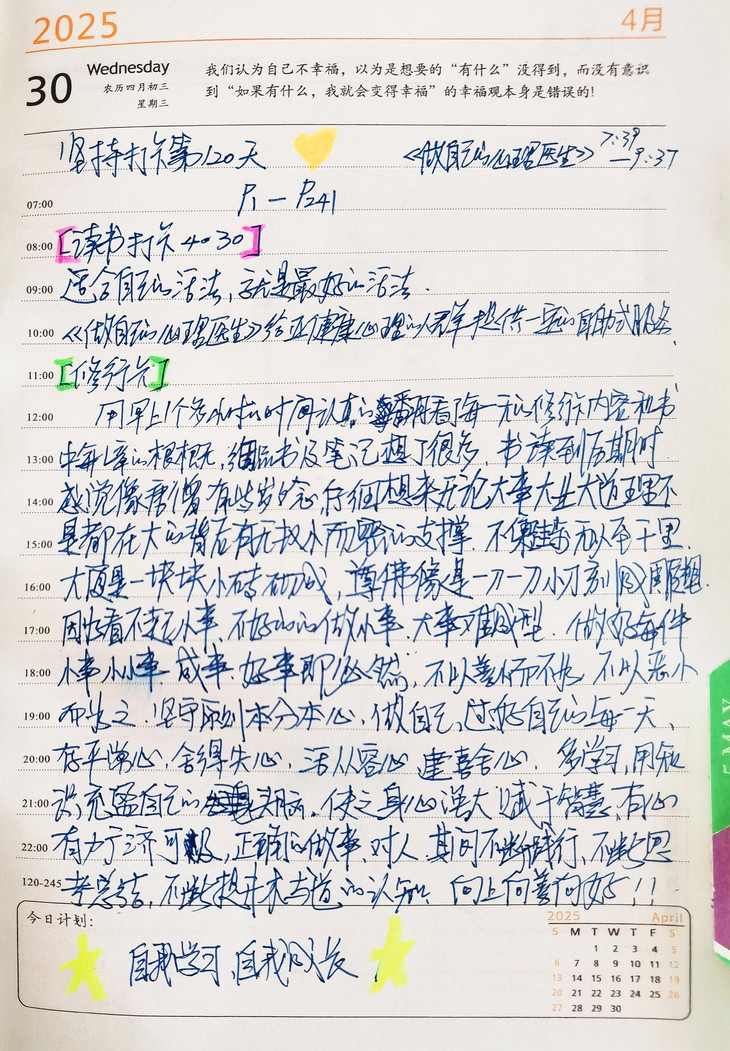 2025
4月
30
Wednesday
农历四月初三
星期三
我们认为自己不幸福，以为是想要的“有什么”没得到，而没有意识
到“如果有什么，我就会变得幸福”的幸福观本身是错误的!
坚持打卡第120天
《做自己的心理医生》 7:39
—9:37
07:00
P1 — P241
08:00 [读书打卡4.30]
09:00 适合自己的活法，就是最好的活法.
10:00 《做自己的心理医生》给亚健康心理的人群提供一定的自助式服务.
11:00 [修行卡]
12:00 用早上1个多小时的时间认真的翻看每一天的修行内容和书
13:00 中每1章的 书及笔记想了很多. 书读到后期时
14:00 感觉像唐僧 仔细想来无论大事大业大道理不
15:00 是都在大的背后有无数小而 的支撑. 不 无以至千里.
16:00 大厦是一块块小砖切成，尊佛像是一刀一刀小刀刻
17:00 因此看不起小事，不好好的做小事，大事难成型. 做好每件
18:00 小事 小事 成事. 好事即必然，不以善小而不为，不以恶小
19:00 而为之. 坚守原则本分本心，做自己，过好自己的每一天，
20:00 存平常心，舍得失心，活从容心，建喜舍心. 多学习，用知
21:00 识充盈自己的头脑，使之身心强大 赋于智慧，有心
22:00 有力 ，正确的做事 对人 其间不断践行、不断思
120-245 考总结，不断提升术与道的认知. 向上向善向好!!
今日计划:
自我学习，自我成长
2025 April
S M T W T F S
1 2 3 4 5
6 7 8 9 10 11 12
13 14 15 16 17 18 19
20 21 22 23 24 25 26
27 28 29 30
MAY